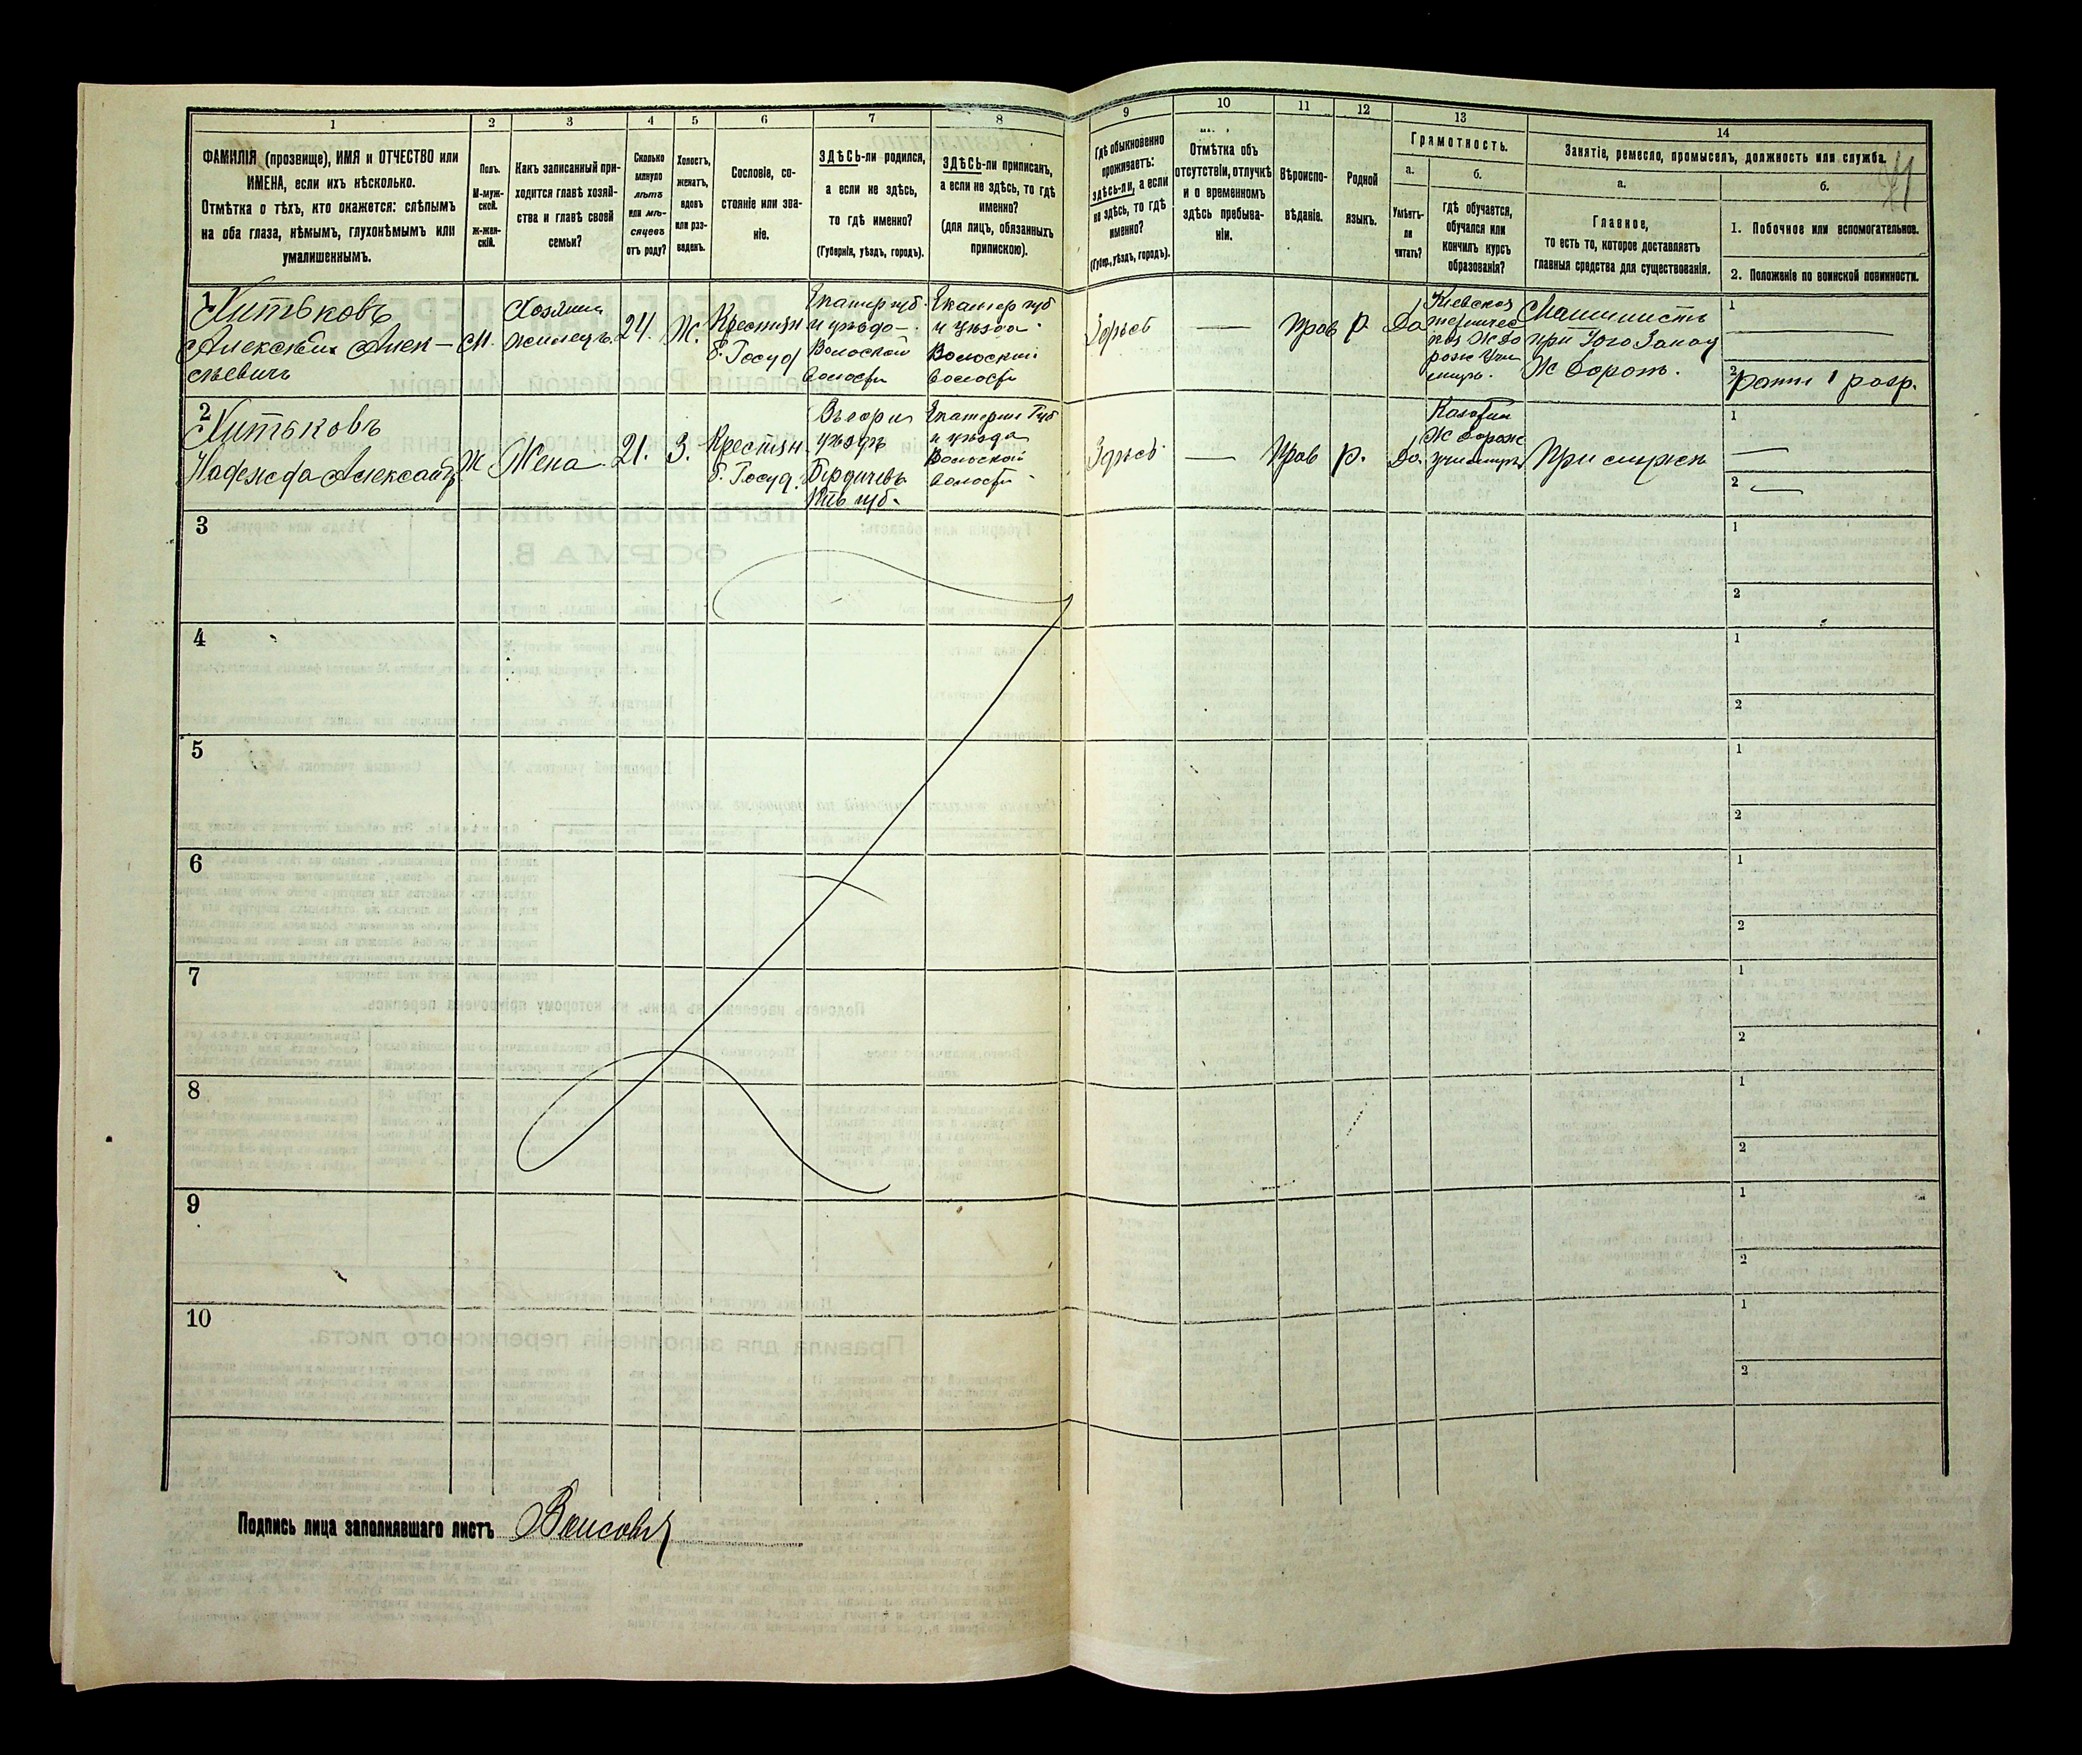 1
2
3
4
5
6
7
8
9
10
11
12
13
14
ФАМИЛІЯ (прозвище), ИМЯ и ОТЧЕСТВО или
ИМЕНА, если ихъ нѣсколько.
Отмѣтка о тѣхъ, кто окажется: слѣпымъ
на оба глаза, нѣмымъ, глухонѣмымъ или
умалишеннымъ.
Полъ.
М-муж-
ской.
ж-жен-
скій.
Какъ записанный при-
ходится главѣ хозяй-
ства и главѣ своей
семьи?
Сколько
минуло
лѣтъ
или мѣ-
сяцевъ
отъ роду?
Холостъ,
женатъ,
вдовъ
или раз-
веденъ.
Сословіе, со-
стояніе или зва-
ніе.
ЗДѢСЬ-ли родился,
а если не здѣсь,
то гдѣ именно?
(Губернія, уѣздъ, городъ).
ЗДѢСЬ-ли приписанъ,
а если не здѣсь, то гдѣ
именно?
(для лицъ, обязанныхъ
припискою).
Гдѣ обыкновенно
проживаетъ:
здѣсь-ли, а если
не здѣсь, то гдѣ
именно?
(Губер., уѣздъ, городъ).
Отмѣтка объ
отсутствіи, отлучкѣ
и о временномъ
здѣсь пребыва-
ніи.
Вѣроиспо-
вѣданіе.
Родной
языкъ.
Грамотность.
а.
Умѣетъ-
ли
читать?
б.
гдѣ обучается,
обучался или
кончилъ курсъ
образованія?
Занятіе, ремесло, промыселъ, должность или служба.
а.
Главное,
то есть то, которое доставляетъ
главныя средства для существованія.
б.
1. Побочное или вспомогательное.
2. Положеніе по воинской повинности.
1
Хитьковъ
Алексѣй Алек-
сѣевичъ
М.
Хозяинъ
жилецъ.
24.
Ж.
Крестьян
б. Госуд
Екатер губ.
и уѣзда
Волоской
волости
Екатер губ
и уѣзда
Волоской
волости
Здѣсь
Прав
р.
Да
Кіевское
техничес
кое Ж до
рож Учи
лище.
Машинистъ
при Юго Запад
Ж дорог.
1
2
ратн 1 разр.
2
Хитьковъ
Надежда Александр.
Ж
Жена.
21.
З.
Крестьян
б. Госуд.
уѣздъ
Бердичевъ
губ.
Екатерин Губ
и уѣзда
Волоской
волости
Здѣсь.
Прав
р.
Да.
Казатин
Ж дорож
училищѣ
При мужѣ
1
2
3
1
2
4
1
2
5
1
2
6
1
2
7
1
2
8
1
2
9
1
2
10
1
2
Подпись лица заполнявшаго листъ